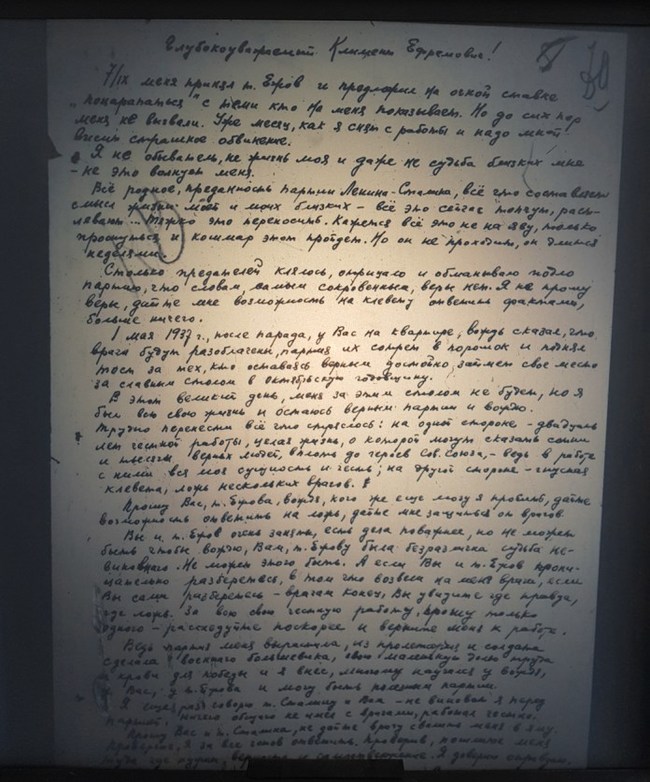 Глубокоуважаемый Климент Ефремович!
7/IX меня принял т. Ежов и предложил на очной ставке
„поцарапаться" с теми кто на меня показывает. Но до сих пор
меня не вызвали. Уже месяц, как я снят с работы и надо мной
висит страшное обвинение.
Я не обыватель, не жизнь моя и даже не судьба близких мне
- не это волнует меня.
Всё родное, преданность партии Ленина-Сталина, всё что составляет
смысл жизни моей и моих близких - всё это сейчас топчут, расп-
леваны... Тяжко это переносить. Кажется всё это не на яву, только
проснуться и кошмар этот пройдет. Но он не проходит, он длится
неделями.
Столько предателей клялось, отрицало и обманывало подло
партию, что словам, самым сокровенным, веры нет. Я не прошу
веры, дайте мне возможность на клевету ответить фактами,
больше ничего.
1 мая 1937 г., после парада, у Вас на квартире, вождь сказал, что
враги будут разоблачены, партия их сотрет в порошок и поднял
тост за тех, кто оставаясь верным достойно, займет свое место
за славным столом в октябрьскую годовщину.
В этот великий день, меня за этим столом не будет, но я
был всю свою жизнь и остаюсь верным партии и вождю.
Трудно перенести всё что стряслось: на одной стороне - двадцать
лет честной работы, целая жизнь, о которой могут сказать сотни
и тысячи верных людей, вплоть до героев Сов. Союза, - ведь в работе
с ними вся моя сущность и честь; на другой стороне - гнусная
клевета, ложь нескольких врагов.
Прошу Вас, т. Ежова, вождя, кого же еще могу я просить, дайте
возможность ответить на ложь, дайте мне защищаться от врагов.
Вы и т. Ежов очень заняты, есть дела поважнее, но не может
быть чтобы вождю, Вам, т. Ежову была безразлична судьба не-
виновного. Не может этого быть. А если Вы и т. Ежов прони-
цательно разберетесь, в том что возвели на меня враги, если
Вы сами разберетесь - врагам конец, Вы увидите где правда,
где ложь. За всю свою честную работу, прошу только
одного - расследуйте поскорее и верните меня к работе.
Ведь партия меня вырастила, из пролетария и солдата
сделала военного большевика, свою маленькую долю труда
и крови для победы и я внес, многому научился у вождя,
у Вас, у т. Ежова и могу быть полезным партии.
Я еще раз говорю т. Сталину и Вам - не виновен я перед
партией, ничего общего не имел с врагами, работал честно.
Прошу Вас и т. Сталина, не дайте врагу свалить меня в яму.
Проверьте, я за все готов ответить. Проверив, пошлите меня